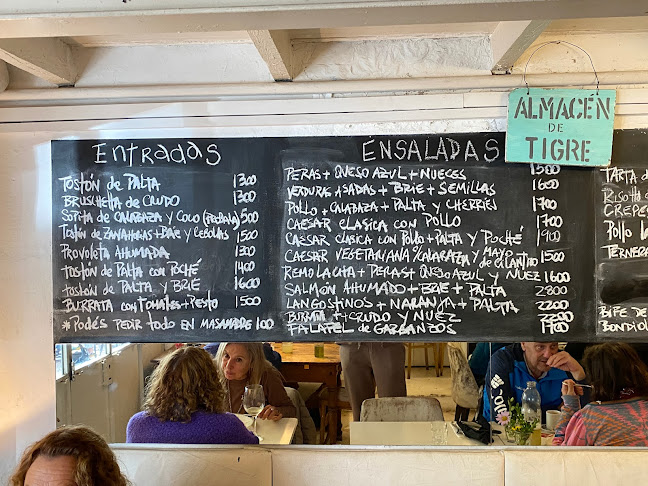 ALMACÉN
DE
TIGRE
Entradas
TOSTÓN de PALTA 1300
BRUSCHETTA de CRUDO 1300
SOPITA de CALABAZA y COCO 1500
TOSTÓN de ZANAHORIAS + BRIE y CEBOLLAS 1500
PROVOLETA AHUMADA 1300
TOSTÓN de PALTA con POCHÉ 1400
TOSTÓN de PALTA y BRIE 1600
BURRATA con TOMATES + PESTO 1500
*PODÉS PEDIR TODO EN MASAMADRE 100
ENSALADAS
PERAS + QUESO AZUL + NUECES 1500
VERDURAS ASADAS + BRIE + SEMILLAS 1600
POLLO + CALABAZA + PALTA y CHERRIES 1700
CAESAR CLASICA con POLLO 1700
CAESAR CLASICA con POLLO + PALTA y POCHÉ 1900
CAESAR VEGETARIANA CALABAZA y MAYO de CILANTRO 1500
REMOLACHA + PERAS + QUESO AZUL y NUEZ 1600
SALMÓN AHUMADO + BRIE + PALTA 2300
LANGOSTINOS + NARANJA + PALTA 2200
BURRATA + CRUDO y NUEZ 2200
FALAFEL de GARBANZOS 1900
TARTA d
RISOTTO
CREPES
POLLO
TERNER
BIFE DE
BONDIOL